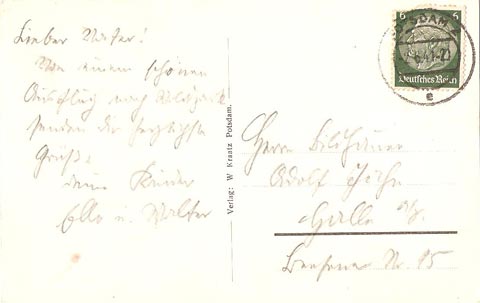 Lieber Vater!
Von einem schönen
Ausflug nach
senden dir herzlichste
Grüße
deine Kinder
Ella u. Walter
Verlag: W Kraatz Potsdam.
6 6
Deutsches Reich
e
Herrn Bildhauer
Adolf
Halle a/S.
Nr. 15